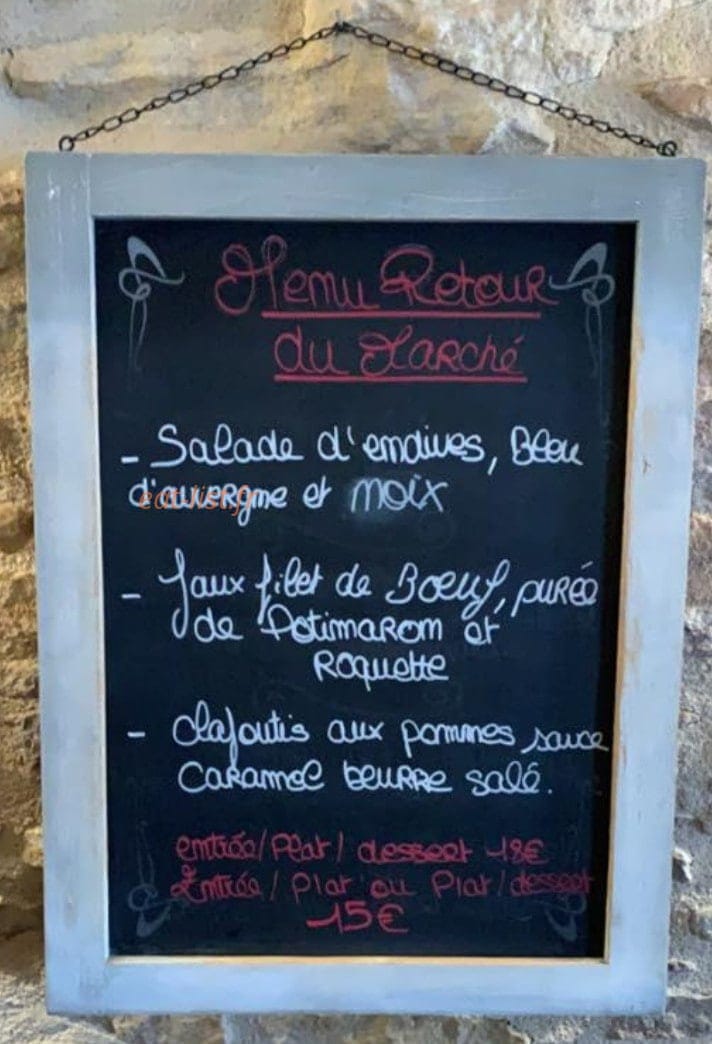 Menu Retour
du Marché
- Salade d'endives, Bleu
d'auvergne et noix
eat-list.fr
- Faux filet de Boeuf, purée
de Potimaron et
Roquette
- Clafoutis aux pommes sauce
caramel beurre salé.
entrée/Plat/dessert 18€
Entrée/Plat ou Plat/dessert
15€